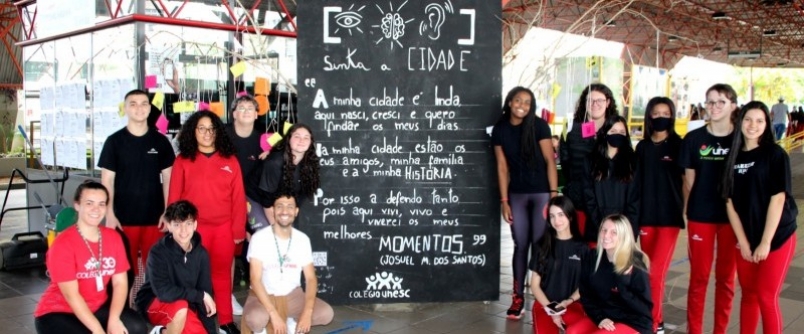 [ ]
Sinta a CIDADE
"A minha cidade é linda,
aqui nasci, cresci e quero
findar os meus dias.
Na minha cidade estão os
meus amigos, minha família
e a minha HISTÓRIA.
Por isso a defendo tanto
pois aqui vivi, vivo e
viverei os meus
melhores MOMENTOS"
(JOSUEL M. DOS SANTOS)
COLÉGIO unesc